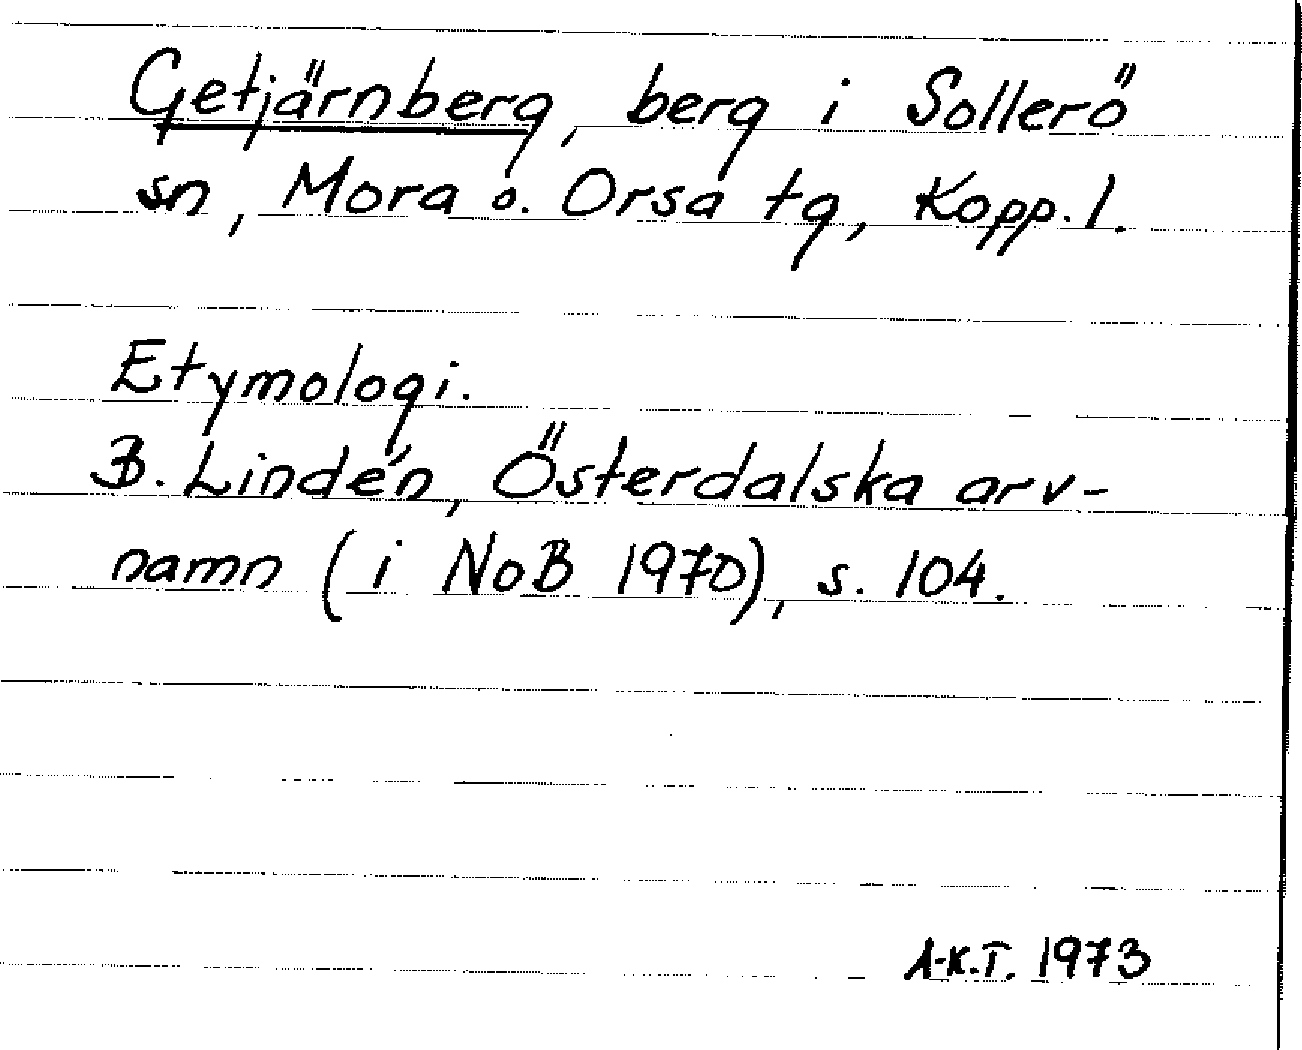 Getjärnberg, berg i Sollerö
sn, Mora o. Orsa tg, Kopp. l.
Etymologi.
B. Lindén, Österdalska arv-
namn (i NoB 1970), s. 104.
A-K.T. 1973